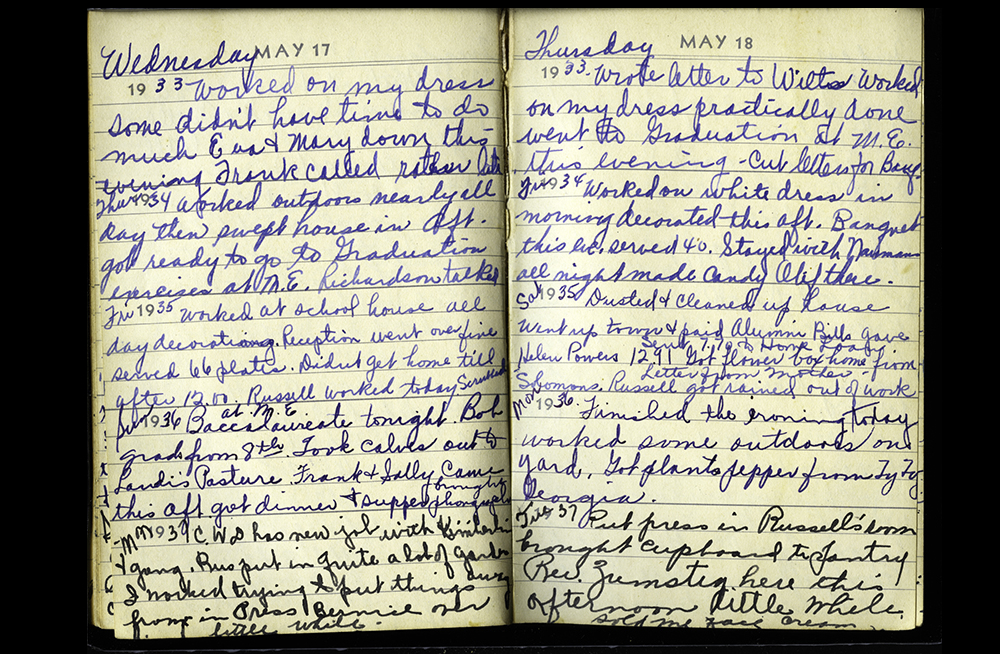 MAY 17
Wednesday
1933 Worked on my dress
some didn't have time to do
much Eva & Mary down this
evening Frank called rather late
Thur 1934 Worked outdoors nearly all
day then swept house in Aft.
got ready to go to Graduation
exercises at M.E. Richardson talked
Fri 1935 Worked at school house all
day decorating. Reception went over fine
served 66 plates. Didn't get home till
after 12.00. Russell worked today
at M.E.
1936 Baccalaureate tonight. Bob
grads from 8th. Took calves out to
Landis Pasture. Frank & Sally Came
this aft got dinner & supper brought
Mon 1937 C.W.D has new job with
& gang. Rus put in quite a lot of garden
I worked trying to put things away
from in Press Bernice over
little while.
MAY 18
Thursday
1933. Wrote letter to Worked
on my dress practically done
went to Graduation at M.E.
this evening - Cut letters for Banq.
Fri 1934 Worked on white dress in
morning decorated this aft. Banquet
this eve. served 40. Stayed with
all night made Candy there.
Sat 1935 Dusted & Cleaned up house
Went up town & paid Alumni Bills gave
Sent 7.70 to Home Loan
Helen Powers 1291 Got flower box home from
Letter from Mother -
Solomons. Russell got rained out of work
Mon 1936. Finished the ironing today
worked some outdoors on
yard. Got plants pepper from Ty Ty
Georgia.
Tues 37 Put press in Russell's room
brought cupboard to Pantry
Rev. Zumstig here this
afternoon little while.
sold me face cream